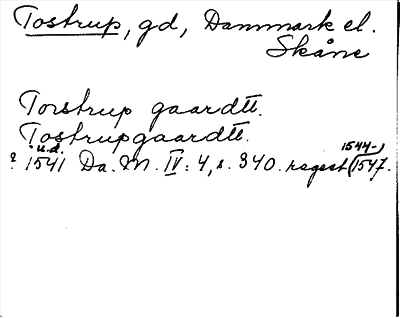 Tostrup, gd, Danmark el.
Skåne
Torstrup gaardtt.
Tostrupgaardtt.
u.d. 1544-)
? 1541 Da. M. IV: 4, s. 340. regest (1547.